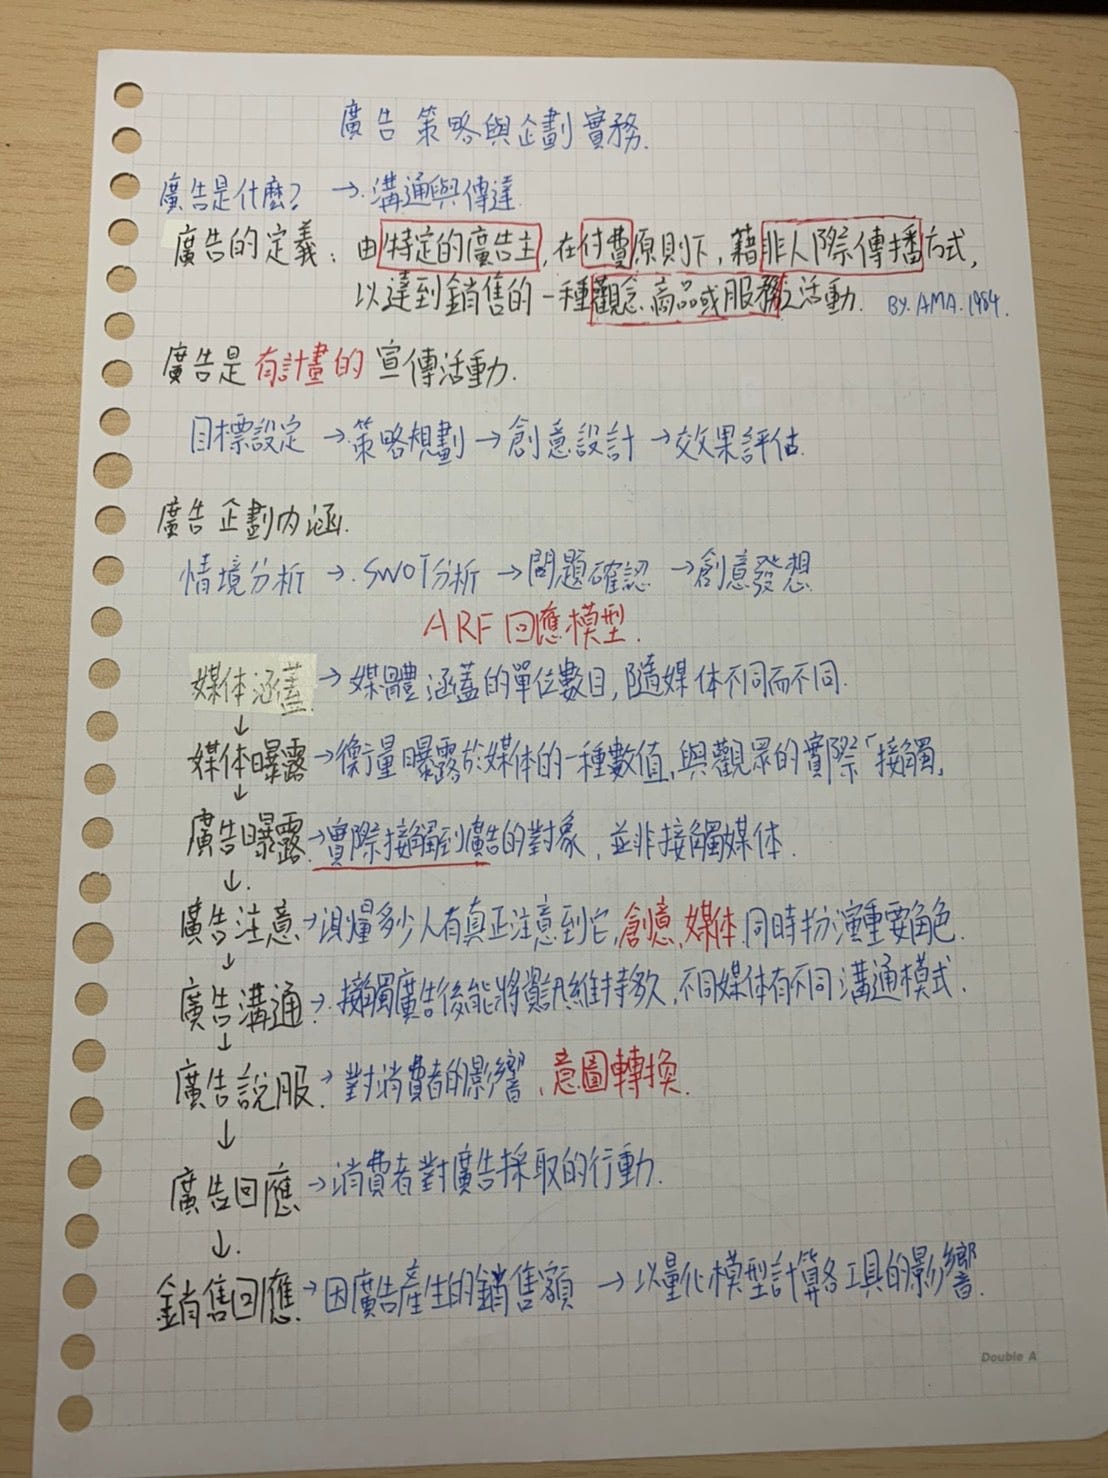 廣告策略與企劃實務.
廣告是什麼? → 溝通與傳達.
廣告的定義: 由特定的廣告主, 在付費原則下, 藉非人際傳播方式,
以達到銷售的一種觀念、商品或服務之活動. BY. AMA. 1984.
廣告是有計畫的宣傳活動.
目標設定 → 策略規劃 → 創意設計 → 效果評估.
廣告企劃內涵.
情境分析 → SWOT分析 → 問題確認 → 創意發想
ARF 回應模型.
媒体涵蓋. → 媒體涵蓋的單位數目, 隨媒体不同而不同.
↓
媒体曝露 → 衡量曝露於媒体的一種數值, 與觀眾的實際「接觸」
↓
廣告曝露. → 實際接觸到廣告的對象, 並非接觸媒体.
↓.
廣告注意 → 測量多少人有真正注意到它, 創意、媒体 同時扮演重要角色.
↓
廣告溝通 → 接觸廣告後能將資訊維持多久, 不同媒体有不同溝通模式.
↓
廣告說服. → 對消費者的影響、意圖轉換.
↓
廣告回應 → 消費者對廣告採取的行動.
↓.
銷售回應. → 因廣告產生的銷售額 → 以量化模型計算各工具的影響.
Double A